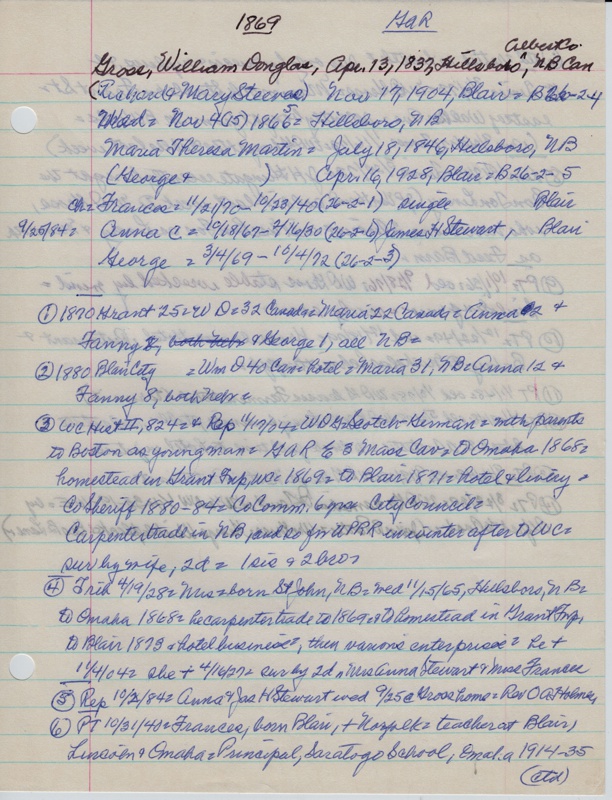 1869 GaR
Gross, William Douglas, Apr. 13, 1837, Hillsboro, Albert Co. NB Can
(Richard & Mary Steeves) Nov 17, 1904, Blair = B26-2-4
Wed = Nov 4 (15) 1865 = Hillsboro, NB
Maria Theresa Martin = July 18, 1846, Hillsboro, NB
(George & ) April 16, 1928, Blair = B26-2-5
Ch = Frances = 11/21/70 - 10/23/40 (26-2-1) single Blair
9/25/84 = Anna C = 10/18/67 - 7/16/30 (26-2-6) James H Stewart, Blair
George = 3/4/69 - 10/4/72 (26-2-3)
① 1870 Grant 25 = W D = 32 Canada = Maria 22 Canada = Anna 2 &
Fanny George 1, all NB =
② 1880 Blair City = Wm D 40 Can = hotel = Maria 31, NB = Anna 12 &
Fanny 8, both Nebr =
③ WC Hist II, 824 = & Rep 11/17/04 = WDG = Scotch-German = with parents
to Boston as young man = GaR E 3 Mass Cav = to Omaha 1868 =
homestead in Grant Twp, WC = 1869 = to Blair 1871 = hotel & livery =
Co Sheriff 1880-84 = Co Comm. 6 yrs City Council =
Carpenter trade in NB, and so for UPRR in winter after to WC =
sur by wife, 2d = 1 sis & 2 bros
④ Trib 4/19/28 = Mrs = born St John, NB = wed 11/15/65, Hillsboro, NB =
to Omaha 1868 = he carpenter trade to 1869 & to homestead in Grant Twp,
to Blair 1873 & hotel business, then various enterprises = he +
11/4/04 = she + 4/16/27 = sur by 2d, Mrs Anna Stewart & Miss Frances
⑤ Rep 10/2/84 = Anna & Jas H Stewart wed 9/25 @ Gross home = Rev O A Holmes,
⑥ PT 10/31/40 = Frances, born Blair, + Norfolk = teacher at Blair,
Lincoln & Omaha = Principal, Saratoga School, Omaha 1914-35
(ctd)